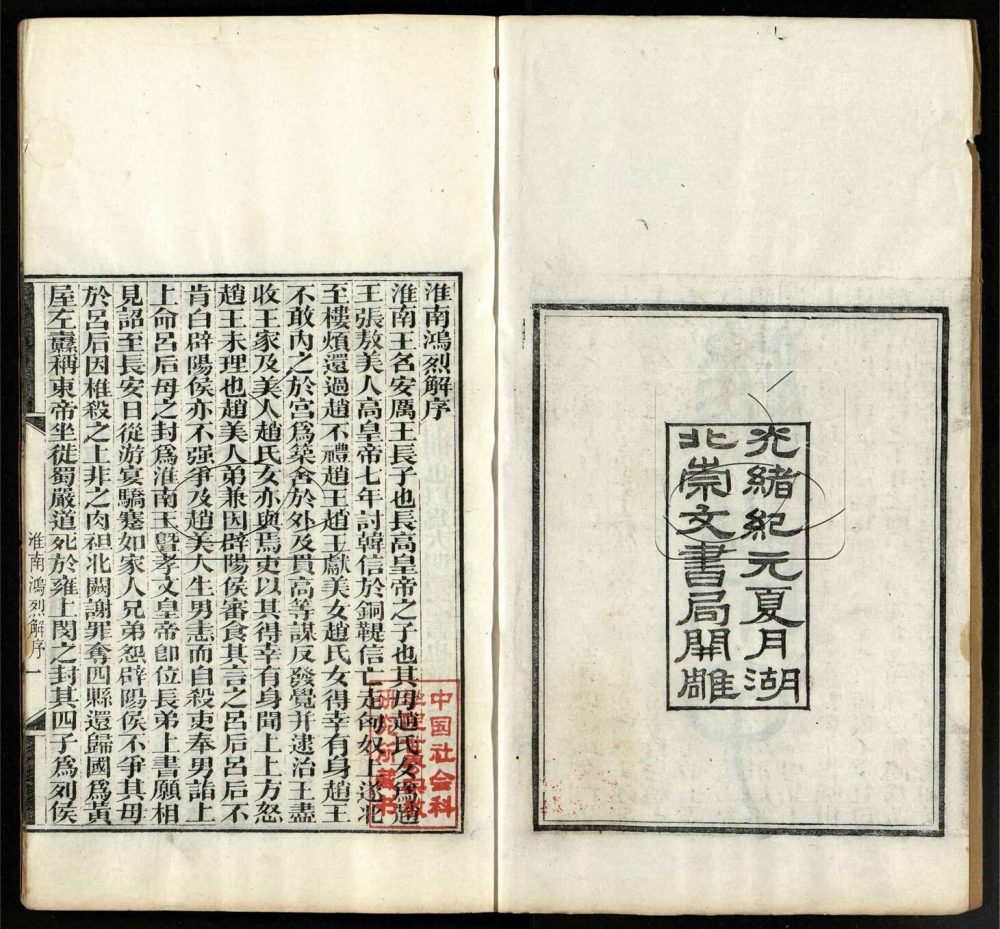 光緒紀元夏月湖
北崇文書局開雕
淮南鴻烈解序
淮南王名安厲王長子也長高皇帝之子也其母趙氏女爲趙
王張敖美人高皇帝七年討韓信於銅鞮信亡走匈奴上遂北
至樓煩還過趙不禮趙王趙王獻美女趙氏女得幸有身趙王
不敢內之於宮爲築舍於外及貫高等謀反發覺并逮治王盡
收王家及美人趙氏女亦與焉吏以其得幸有身聞上上方怒
趙王未理也趙美人弟兼因辟陽侯審食其言之呂后呂后不
肯白辟陽侯亦不强爭及趙美人生男恚而自殺吏奉男詣上
上命呂后母之封爲淮南王暨孝文皇帝卽位長弟上書願相
見詔至長安日從游宴驕蹇如家人兄弟怨辟陽侯不爭其母
於呂后因椎殺之上非之肉袒北闕謝罪奪四縣還歸國爲黃
屋左纛稱東帝坐徙蜀嚴道死於雍上閔之封其四子爲列侯
淮南鴻烈解序 一
中国社会科
学院世界宗教
研究所藏书